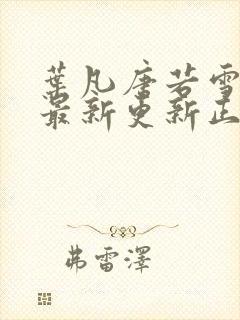 葉凡唐若雪
最新更新正
弗雷澤